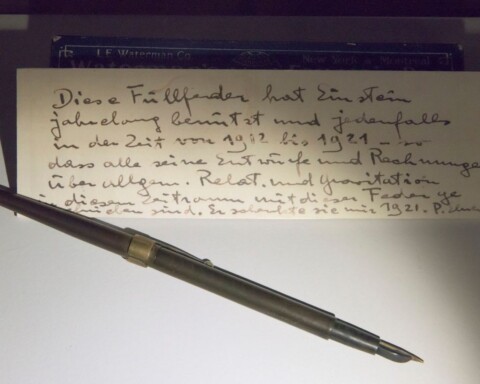 L.E. Waterman Co. New York & Montreal
Diese Füllfeder hat Einstein
jahrelang benützt und jedenfalls
in der Zeit von 1912 bis 1921 – so
dass alle seine Entwürfe und Rechnungen
über allgem. Relat. und Gravitation
in diesem Zeitraum mit dieser Feder ge
sind. Er schenkte sie mir 1921. P.